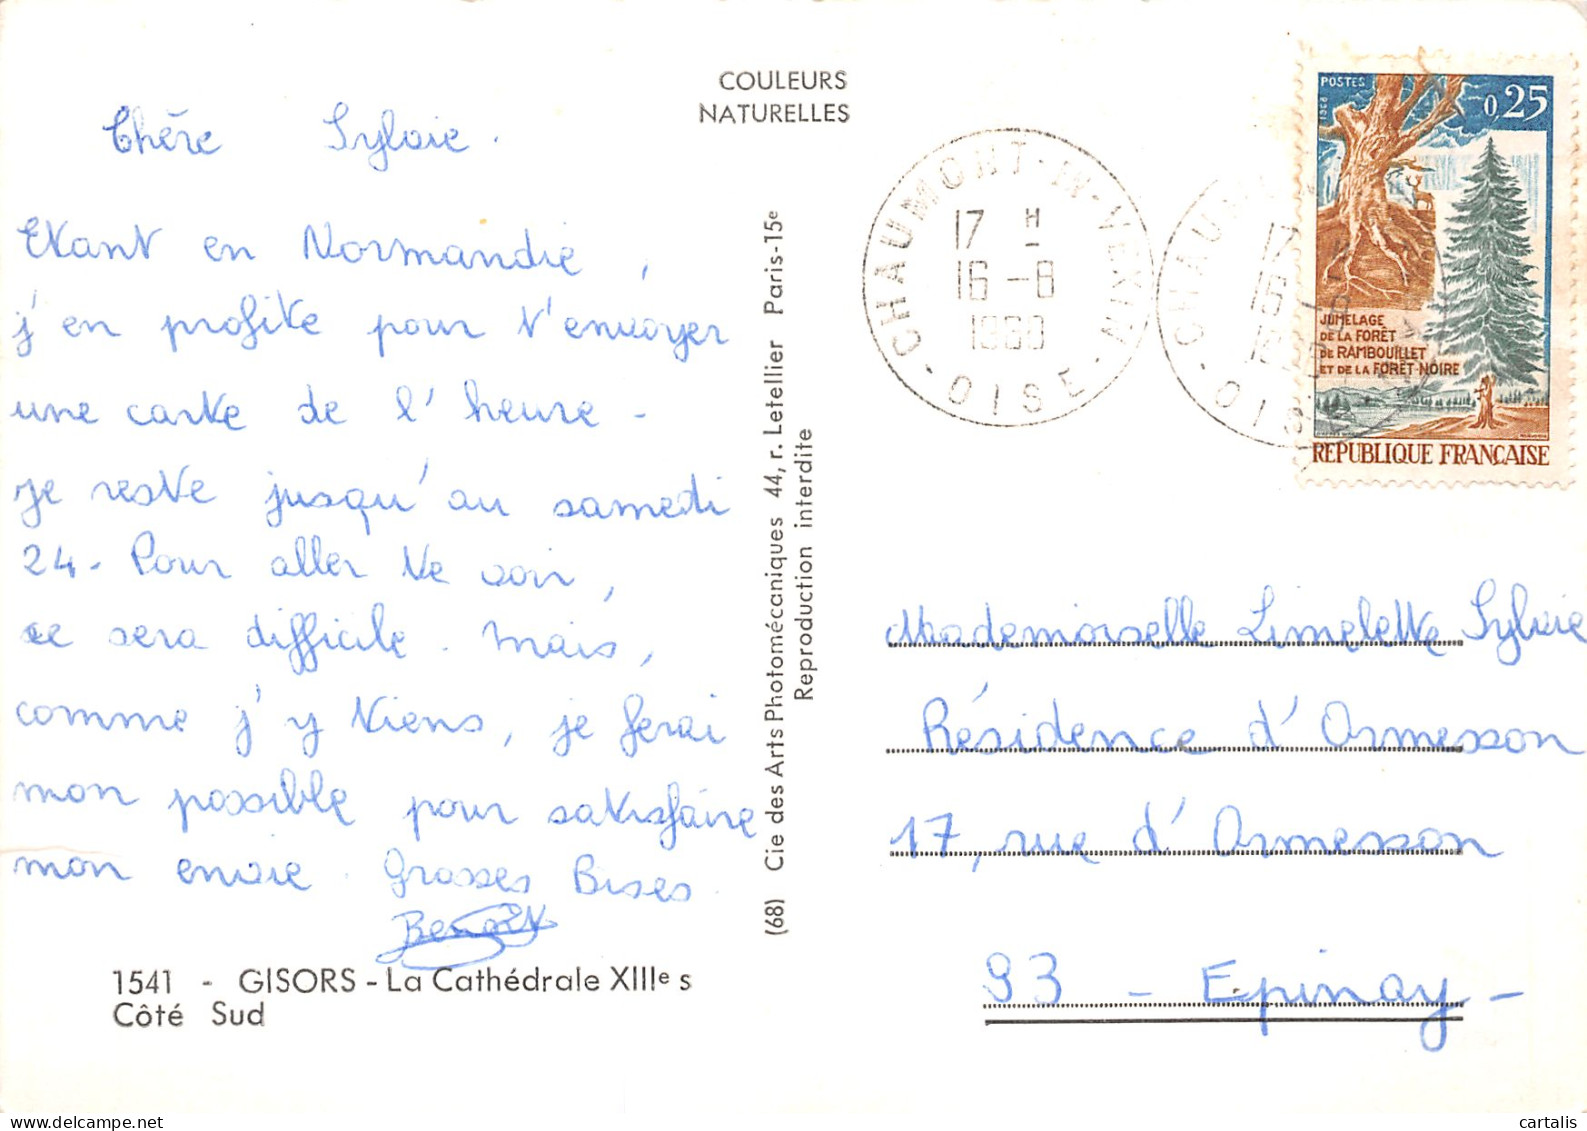 COULEURS
NATURELLES
Chère Sylvie.
Etant en Normandie,
j'en profite pour t'envoyer
une carte de l'heure -
je reste jusqu'au samedi
24. Pour aller te voir,
ce sera difficile. Mais,
comme j'y tiens, je ferai
mon possible pour satisfaire
mon envie. Grosses Bises.
Benoît
1541 - GISORS - La Cathédrale XIIIe s
Côté Sud
(68) Cie des Arts Photomécaniques 44, r. Letellier Paris-15e
Reproduction interdite
CHAUMONT-EN-VEXIN
17 H
16 -8
1968
- OISE -
CHAUM
17
16
OIS
POSTES
1968
0,25
JUMELAGE
DE LA FORÊT
DE RAMBOUILLET
ET DE LA FORÊT-NOIRE
REPUBLIQUE FRANÇAISE
Mademoiselle Limelette Sylvie
Résidence d'Ormesson
17, rue d'Ormesson
93 - Epinay -
cartalis